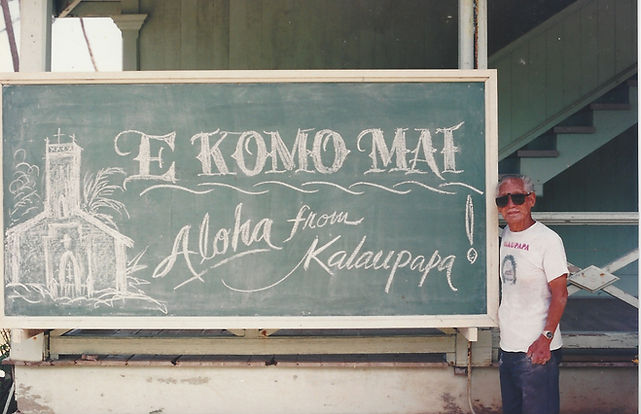 E KOMO MAI
Aloha from
Kalaupapa!
KALAUPAPA